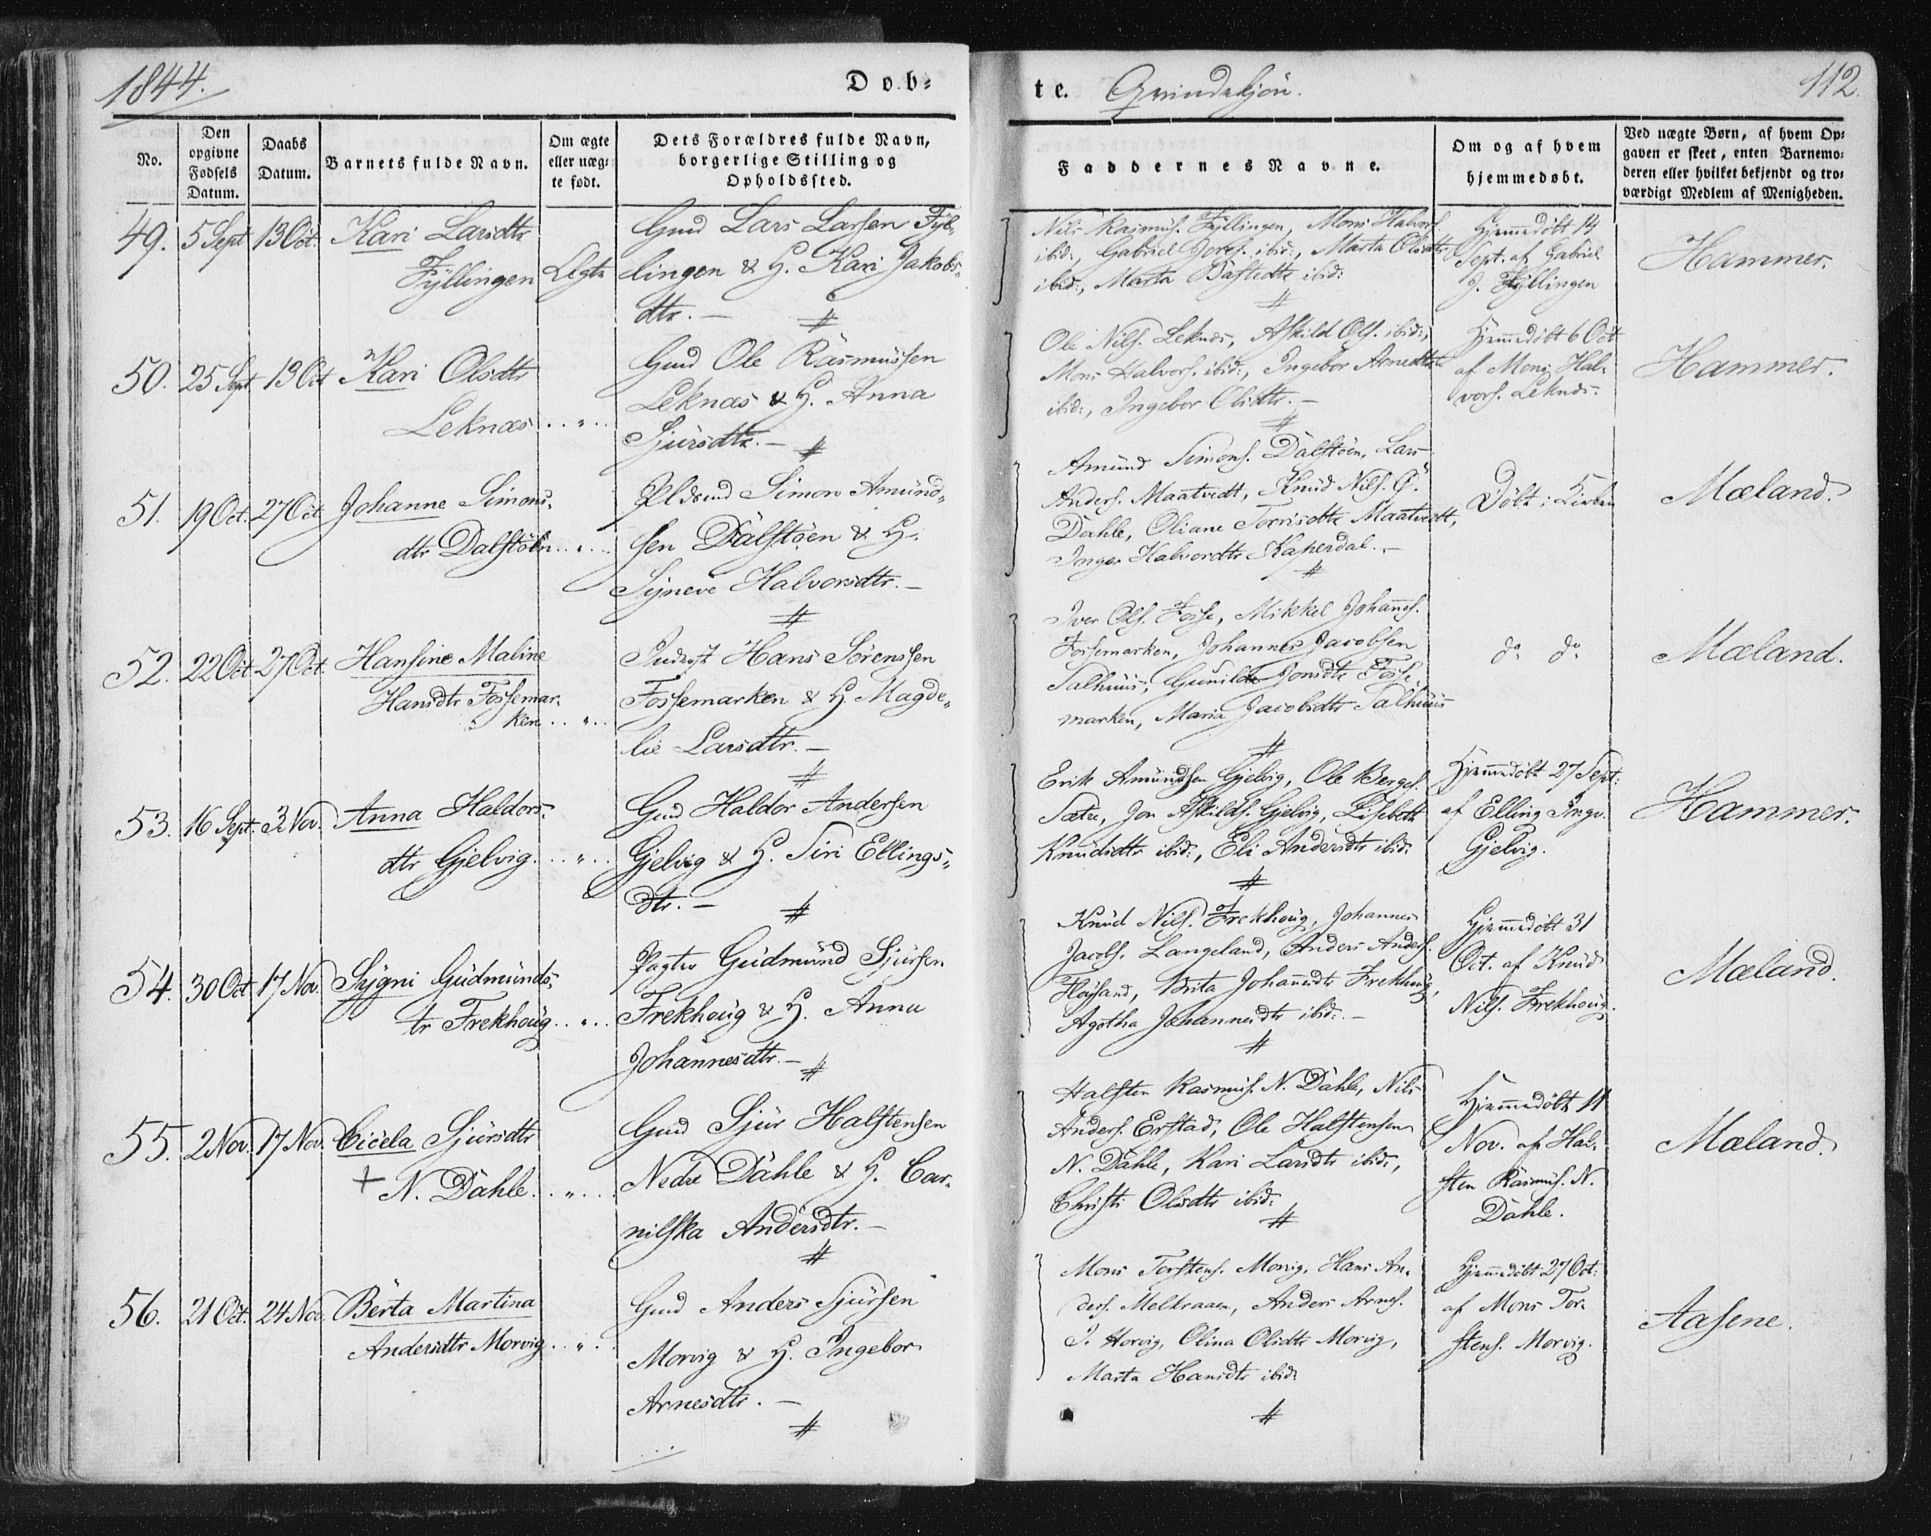 1844.
Dob-
te. Qvindekjøn.
112.
No.
Den opgivne Fødsels Datum.
Daabs Datum.
Barnets fulde Navn.
Om ægte eller uægte født.
Dets Forældres fulde Navn, borgerlige Stilling og Opholdssted.
Faddernes Navne.
Om og af hvem hjemmedøbt.
Ved uægte Børn, af hvem Op-
gaven er skeet, enten Barnemo-
deren eller hvilket bekjendt og tro-
værdigt Medlem af Menigheden.
49. 5 Sept 13 Oct. Kari Larsdtr
Fyllingen Ægte
Gmd Lars Larsen Fyl-
lingen & H. Kari Jakobs-
dtr. –
Nils Rasmus. Fyllingen, Mons Halvors.
ibid:, Gabriel Josef. ibid:, Marta Olsdtr
ibid:, Marta ibid:
Hjemmedøbt 14
Sept. af Gabriel
J. Fyllingen
Hammer.
50. 25 Sept. 13 Oct Kari Olsdtr
Leknæs . . „ . .
Gmd Ole Rasmussen
Leknæs & H. Anna
Sjursdtr. –
Ole Nils. Leknæs, Askild Ols. ibid:,
Mons Halvors. ibid:, Ingebor Arnedtr
ibid:, Ingebor Olsdtr. –
Hjemmedøbt 6 Oct
af Mons Hal-
vors. Leknæs.
Hammer.
51. 19 Oct. 27 Oct Johanne Simons-
dtr Dalstøen . . „ . .
Simon Amund-
sen Dalstøen & H.
Synneve Halvorsdtr. –
Amund Simons. Dalstøen, Lars
Anders. Maatvedt, Knud Nils. Ø.
Dahle, Oliane Torrisdtr Maatvedt,
Inger Halvordtr Kaperdal. –
Døbt i Kirken
Mæland.
52. 22 Oct. 27 Oct. Hansine Maline
Hansdtr Fossemar-
ken . . „ . .
Inderst Hans Sørenssen
Fossemarken & H. Magde-
lie Larsdtr. –
Iver Ols. Fosse, Mikkel Johannes.
Fossemarken, Johannes Jacobsen
Salhuus, Gunilde Jonsdtr Fosse-
marken, Maria Jacobsdtr Salhuus
do do
Mæland.
53. 16 Sept. 3 Nov. Anna Haldors-
dtr Gjelvig . . „ . .
Gmd Haldor Andersen
Gjelvig & H. Siri Ellings-
dtr. –
Erik Amundsen Gjelvig, Ole Berges.
Sætre, Jon Askilds. Gjelvig, Lisebett
Knudsdtr ibid:, Eli Andersdtr ibid:
Hjemmedøbt 27 Sept:
af Elling Ingv.
Gjelvig.
Hammer.
54. 30 Oct 17 Nov. Sygni Gudmunds-
tr Frekhoug . . „ . .
Pagter Gudmund Sjursen
Frekhoug & H. Anna
Johannesdtr. –
Knud Nils. Frekhoug, Johannes
Jacobs. Langeland, Anders Anders.
Fløjsand, Brita Johannsdtr Frekhoug,
Agotha Johannesdtr ibid: –
Hjemmedøbt 31
Oct. af Knud
Nils. Frekhoug.
Mæland.
55. 2 Nov. 17 Nov. Cicela Sjursdtr
+ N. Dahle . . „ . .
Gmd Sjur Halstensen
Nedre Dahle & H. Cor-
nilska Andersdtr. –
Halsten Rasmus. N. Dahle, Nils
Anders. Erstad, Ole Halstensen
N. Dahle, Kari Larsdtr ibid:,
Christi Olsdtr ibid:
Hjemmedøbt 11
Nov. af Hal-
sten Rasmus. N.
Dahle.
Mæland.
56. 21 Oct. 24 Nov. Berta Martina
Andersdtr Morvig . . „ . .
Gmd Anders Sjursen
Morvig & H. Ingebor
Arnesdtr. –
Mons Torstens. Morvig, Hans An-
ders. Melkraaen, Anders Arnes.
I. Horvig, Olina Olsdtr Morvig,
Marta Hansdtr ibid:
Hjemmedøbt 27 Oct:
af Mons Tor-
stens. Morvig.
Aasene.